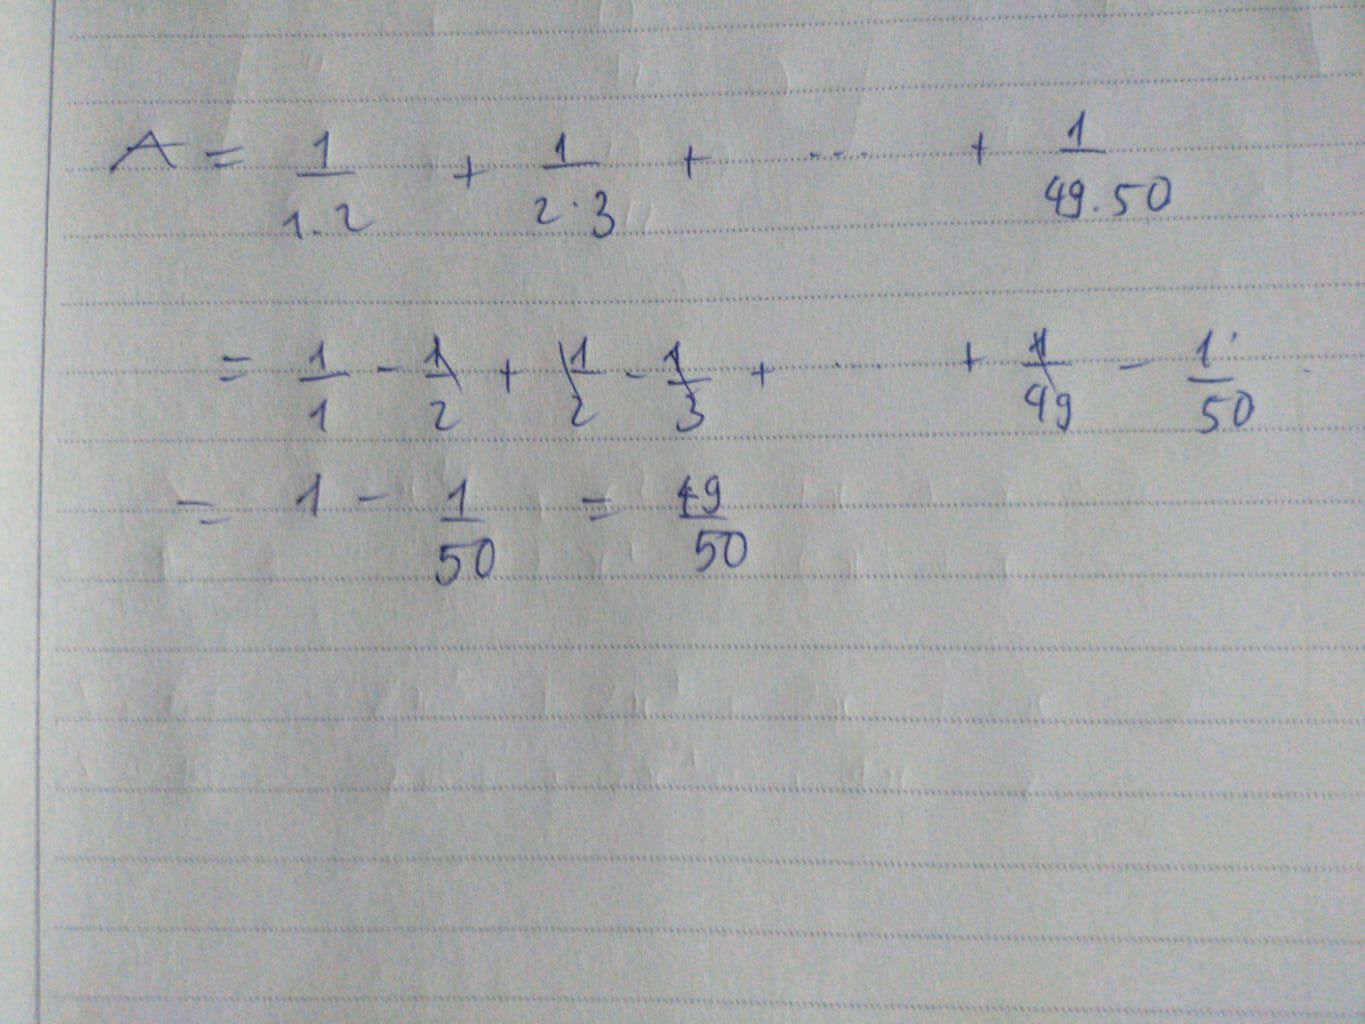 A = 1/1.2 + 1/2.3 + ..... + 1/49.50
= 1/1 - 1/2 + 1/2 - 1/3 + ..... + 1/49 - 1/50
= 1 - 1/50 = 49/50